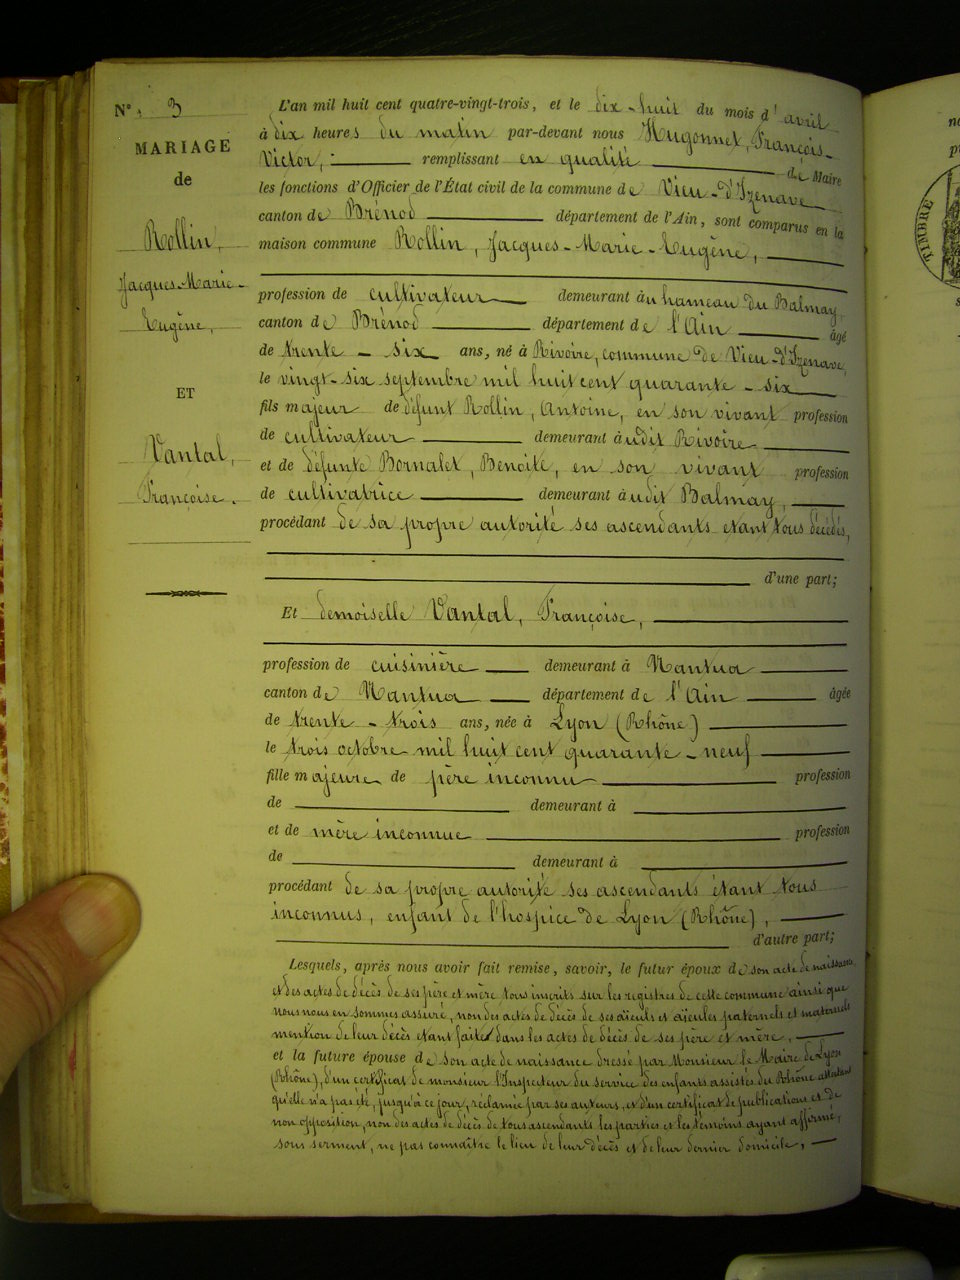 N° 3
MARIAGE
de
Rollin,
Jacques-Marie-
Eugène,
ET
Vantal,
Françoise.
L'an mil huit cent quatre-vingt-trois, et le dix-huit du mois d'avril
à dix heures du matin par-devant nous Hugonnet, François-
Victor, remplissant en qualité de Maire
les fonctions d'Officier de l'État civil de la commune de Vieu-d'Izenave
canton de Brénod département de l'Ain, sont comparus en la
maison commune Rollin, Jacques-Marie-Eugène,
profession de cultivateur demeurant au hameau du Balmay,
canton de Brénod département de l'Ain âgé
de trente-six ans, né à Rivoire, commune de Vieu-d'Izenave,
le vingt-six septembre mil huit cent quarante-six
fils majeur de défunt Rollin, Antoine, en son vivant profession
de cultivateur demeurant audit Rivoire
et de défunte Bornalet, Benoite, en son vivant profession
de cultivatrice demeurant audit Balmay,
procédant de sa propre autorité ses ascendants étant tous décédés,
d'une part;
Et demoiselle Vantal, Françoise,
profession de cuisinière demeurant à Nantua
canton de Nantua département de l'Ain âgée
de trente-trois ans, née à Lyon (Rhône)
le trois octobre mil huit cent quarante-neuf
fille majeure de père inconnu profession
de demeurant à
et de mère inconnue profession
de demeurant à
procédant de sa propre autorité ses ascendants étant tous
inconnus, enfant de l'hospice de Lyon (Rhône),
d'autre part;
Lesquels, après nous avoir fait remise, savoir, le futur époux de son acte de naissance
et des actes de décès de ses père et mère tous inscrits sur les registres de cette commune ainsi que
nous nous en sommes assuré, non des actes de décès de ses aïeuls et aïeules paternels et maternels
mention de leur décès étant faite dans les actes de décès de ses père et mère,
et la future épouse de son acte de naissance dressé par Monsieur le Maire de Lyon
(Rhône), d'un certificat de monsieur l'Inspecteur du service des enfants assistés du Rhône attestant
qu'elle n'a pas été, jusqu'à ce jour, réclamée par ses auteurs, et d'un certificat de publications et de
non opposition, non des actes de décès de tous ascendants les parties et les témoins ayant affirmé,
sous serment, ne pas connaître le lieu de leur décès et de leur dernier domicile,
TIMBRE